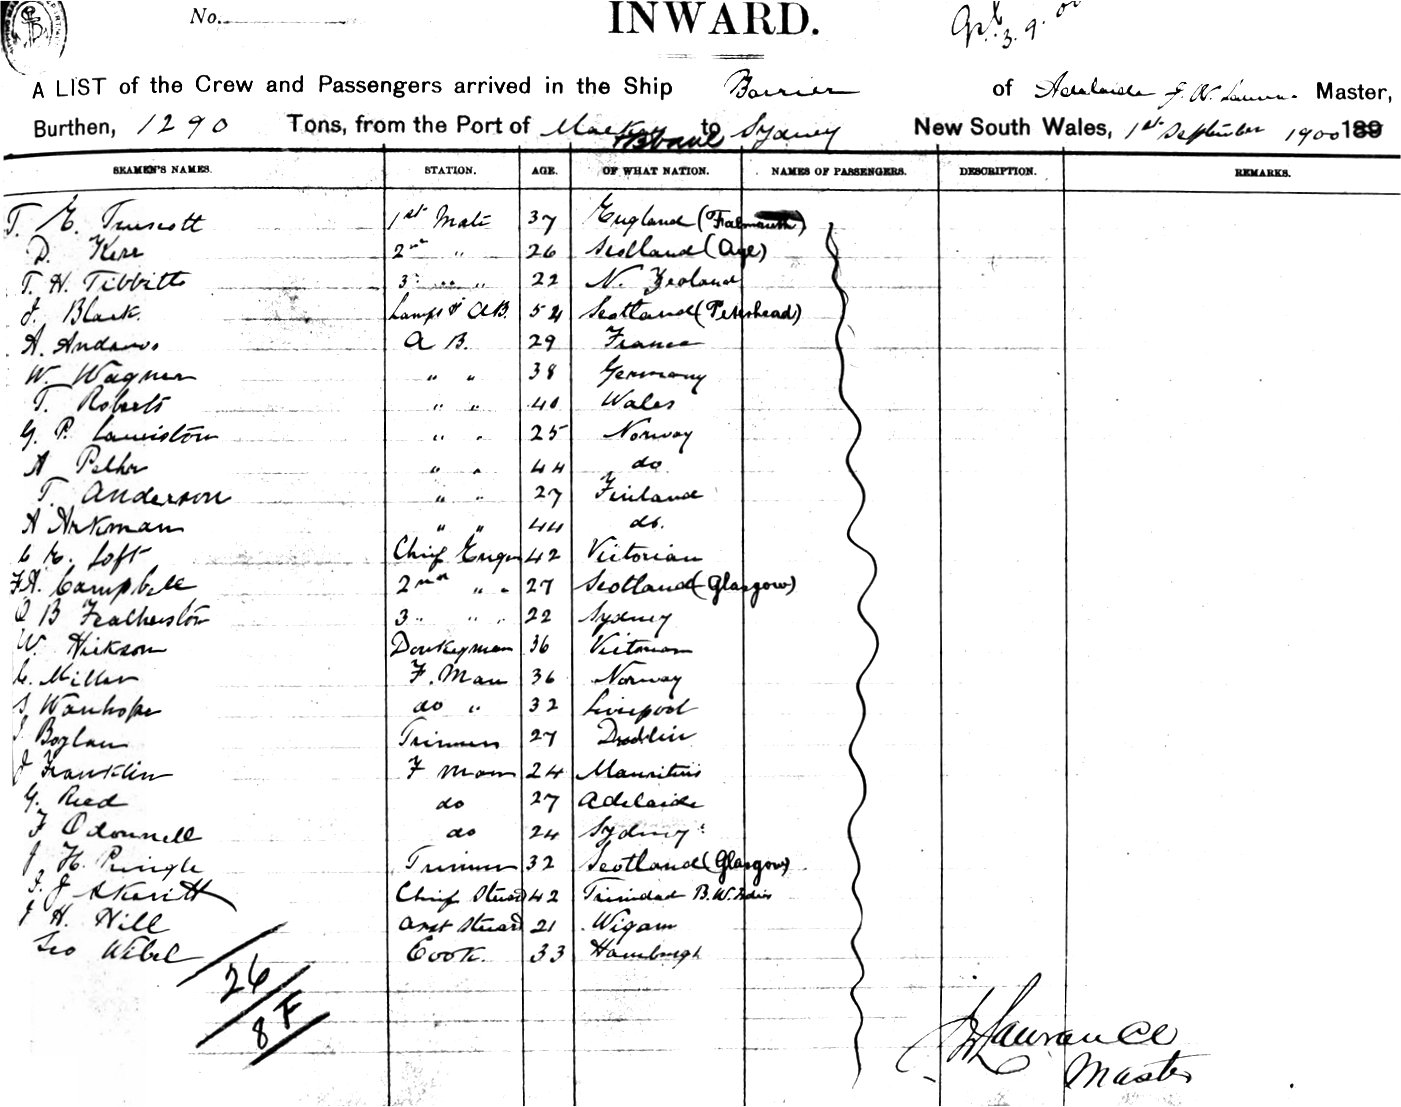 No.
INWARD.
3.9.00
A LIST of the Crew and Passengers arrived in the Ship Barrier of Adelaide J. W. Laurance Master,
Burthen, 1290 Tons, from the Port of Mackay to Sydney New South Wales, 1st September 1900 189
SEAMEN'S NAMES. STATION. AGE. OF WHAT NATION. NAMES OF PASSENGERS. DESCRIPTION. REMARKS.
T. E. Truscott 1st Mate 37 England (Falmouth)
D. Kerr 2nd " 26 Scotland (Ayr)
T. H. Tibbitts 3 " " 22 N. Zealand
J. Black. Lamps & AB. 54 Scotland (Peterhead)
A. Andrews A B. 29 France
W. Wagner " " 38 Germany
T. Roberts " " 40 Wales
G. P. Lauriston " " 25 Norway
A " " 44 do
T. Anderson " " 27 Finland
A Arkman " " 44 do.
C E. Loft Chief Engr 42 Victorian
F.A. Campbell 2nd " " 27 Scotland (Glasgow)
O B Fealherston 3 " " 22 Sydney
W Hickson Donkeyman 36 Victorian
C. Miller F. Man 36 Norway
S Wanhope do " 32 Liverpool
J. Boylan Trimmer 27 Dublin
J Franklin F man 24 Mauritius
G. Reed do 27 Adelaide
F Odonnell do 24 Sydney
J H. Pringle Trimmer 32 Scotland (Glasgow)
J. Skeritt Chief Steward 42 Trinidad B.W. Indies
J H. Hill Asst Steward 21 Wigam
Geo Webel Cook. 33 Hamburgh
26
8 F
J W Laurance
Master